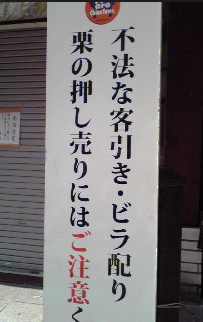 不法な客引き・ビラ配り
栗の押し売りにはご注意く